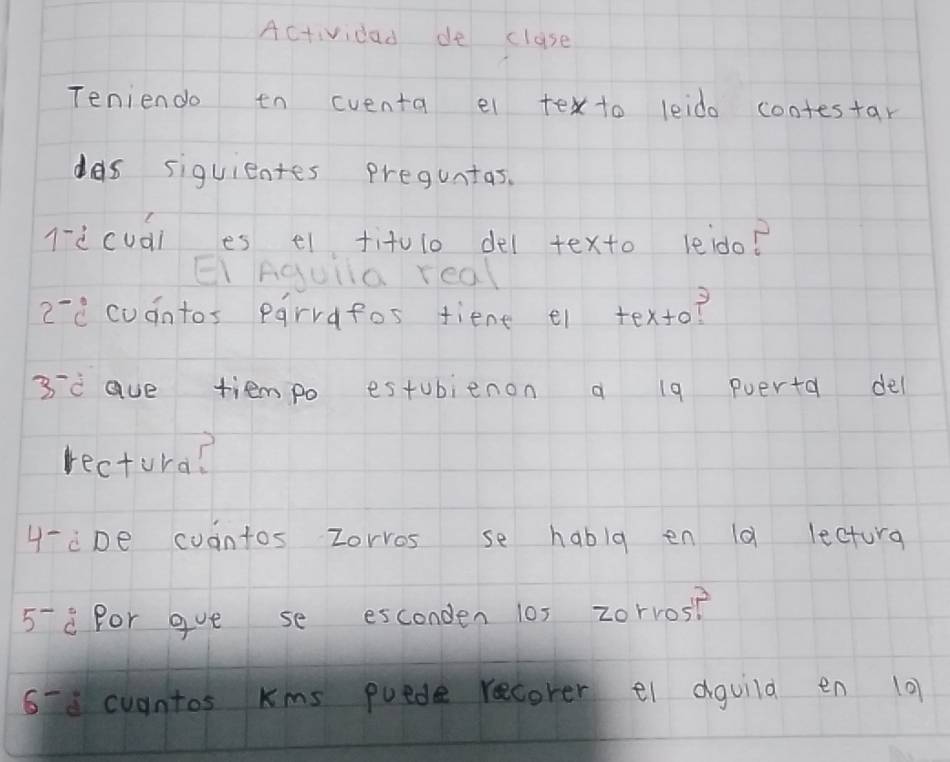 Actividad de clase
Teniendo en cuenta el texto leido contestar
las siguientes preguntas.
1-¿cuál es el titulo del texto leido?
El Aguila real
2-¿cuántos párrafos tiene el texto?
3-¿que tiempo estubienon a la puerta del
lectura?
4-¿De cuántos zorros se habla en la lectura
5-¿Por que se esconden los zorros?
6-¿cuantos Kms puede recorer el aguila en la